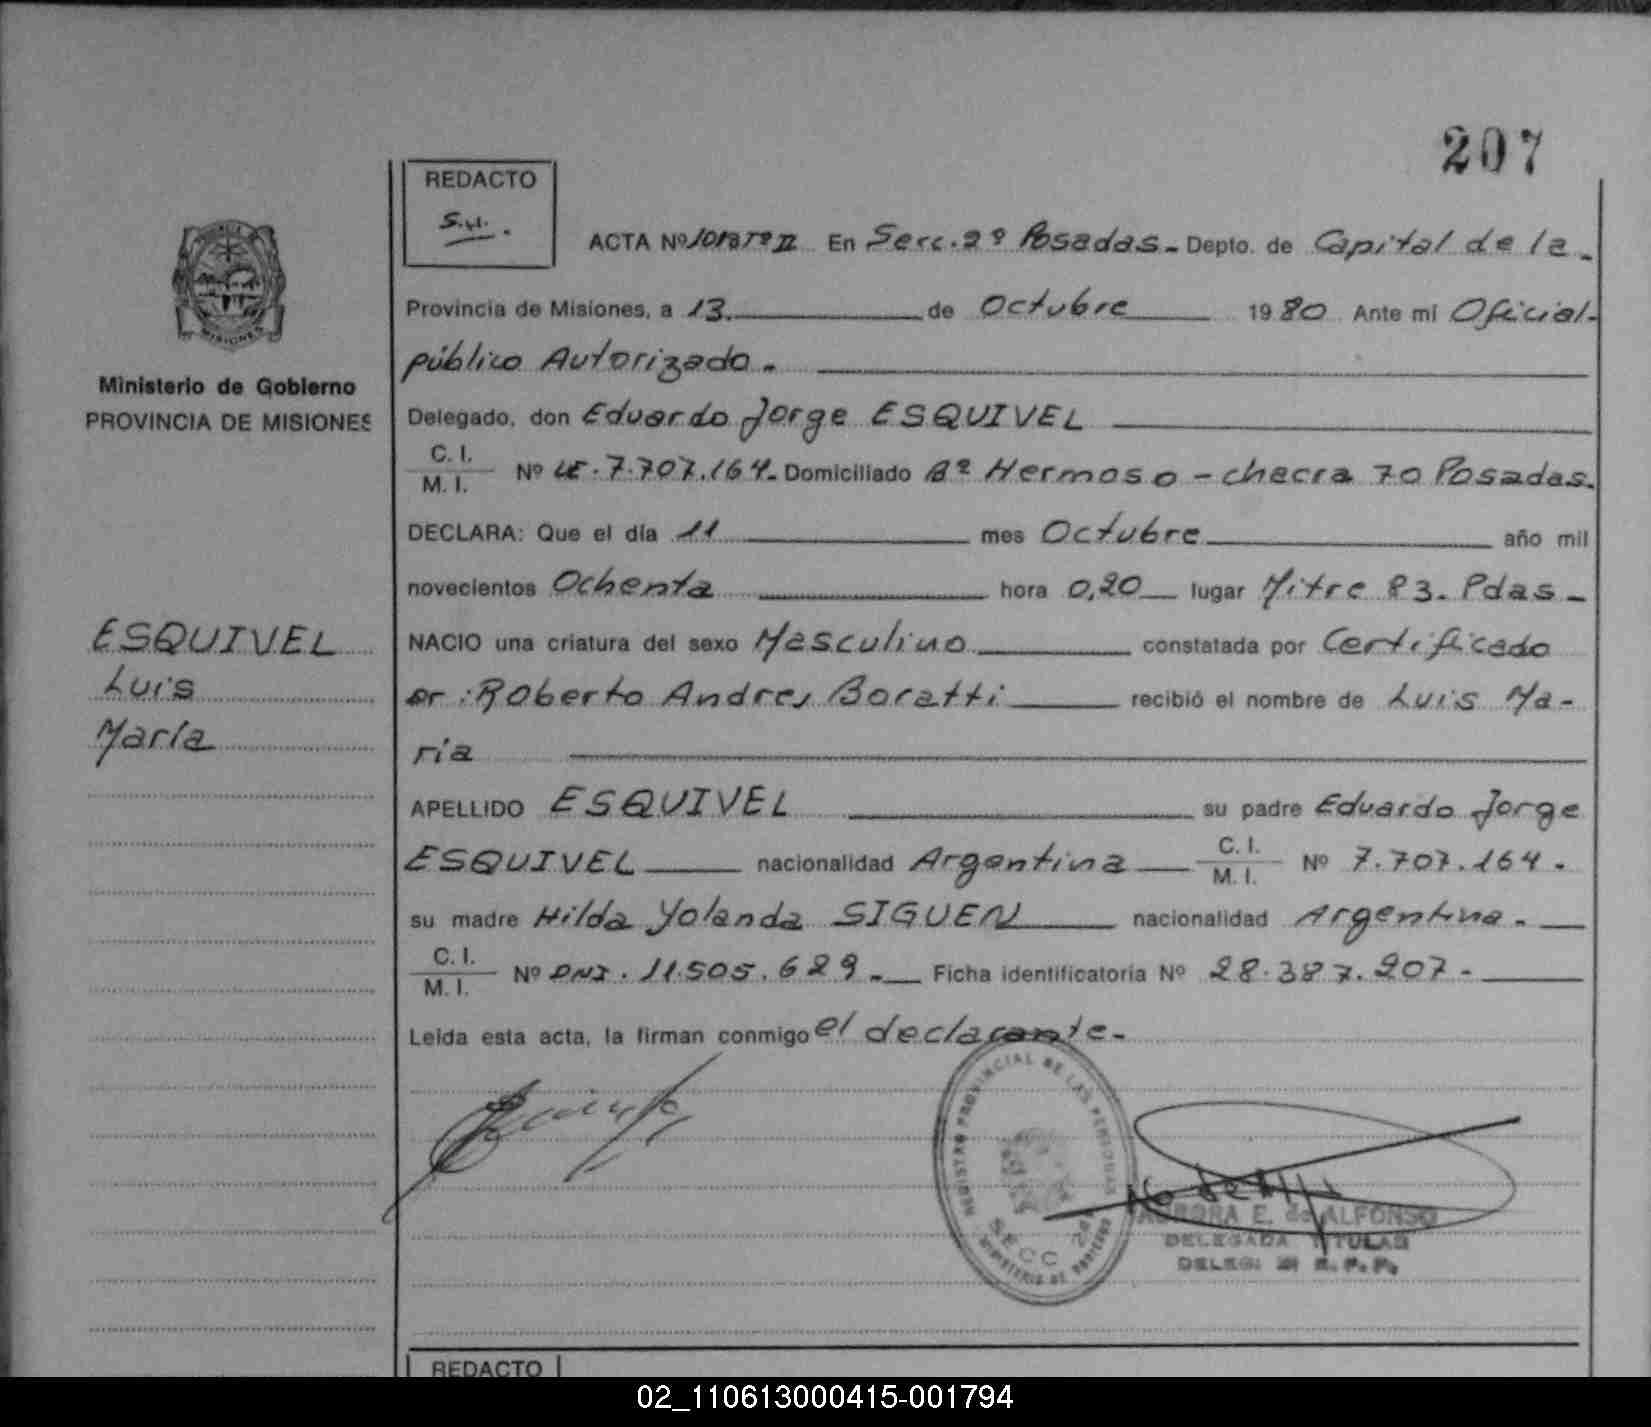 207
REDACTO
S.y.
ACTA Nº 1018 Tº II En Secc. 2ª Posadas - Depto. de Capital de la -
MISIONES
Provincia de Misiones, a 13. de Octubre 1980 Ante mi Oficial -
público Autorizado.
Ministerio de Gobierno
PROVINCIA DE MISIONES
Delegado, don Eduardo Jorge ESQUIVEL
C. I.
M. I. Nº LE. 7.707.164. Domiciliado Bº Hermoso - checra 70 Posadas.
DECLARA: Que el día 11 mes Octubre año mil
novecientos Ochenta hora 0,20 lugar Mitre 83. Pdas -
ESQUIVEL
Luis
María
NACIO una criatura del sexo Masculino constatada por Certificado
Dr: Roberto Andres Boratti recibió el nombre de Luis Ma-
ría
APELLIDO ESQUIVEL su padre Eduardo Jorge
ESQUIVEL nacionalidad Argentina C. I.
M. I. Nº 7.707.164.
su madre Hilda Yolanda SIGUEN nacionalidad Argentina.
C. I.
M. I. Nº DNI. 11.505.629. Ficha identificatoria Nº 28.387.207 -
Leída esta acta, la firman conmigo el declarante -
REGISTRO PROVINCIAL DE LAS PERSONAS
SECC 2da
MINISTERIO DE GOBIERNO
AURORA E. de ALFONSO
DELEGADA TITULAR
DELEG. R. P. P.
REDACTO
02_110613000415-001794